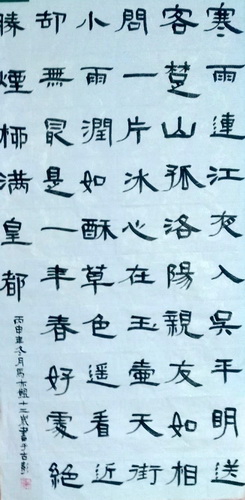 寒雨連江夜入吳平明送
客楚山孤洛陽親友如相
問一片冰心在玉壺天街
小雨潤如酥草色遥看近
却無最是一年春好處絕
勝煙柳满皇都
丙申年冬月馬十二歲書于古